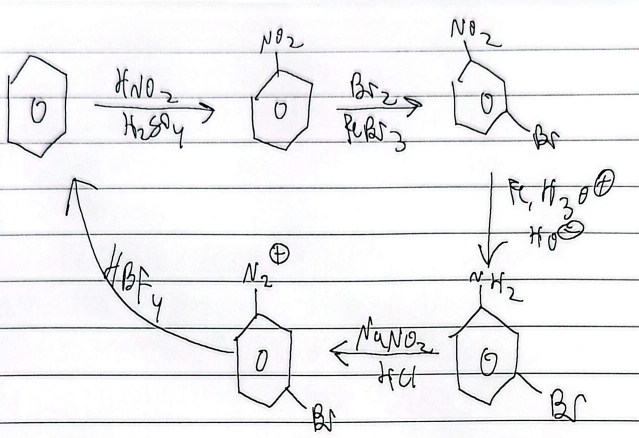 NO2
HNO2
H2SO4
Br2
FeBr3
NO2
Br
Fe, H3O⊕
HO⊖
NH2
Br
NaNO2
HCl
N2⊕
Br
HBF4